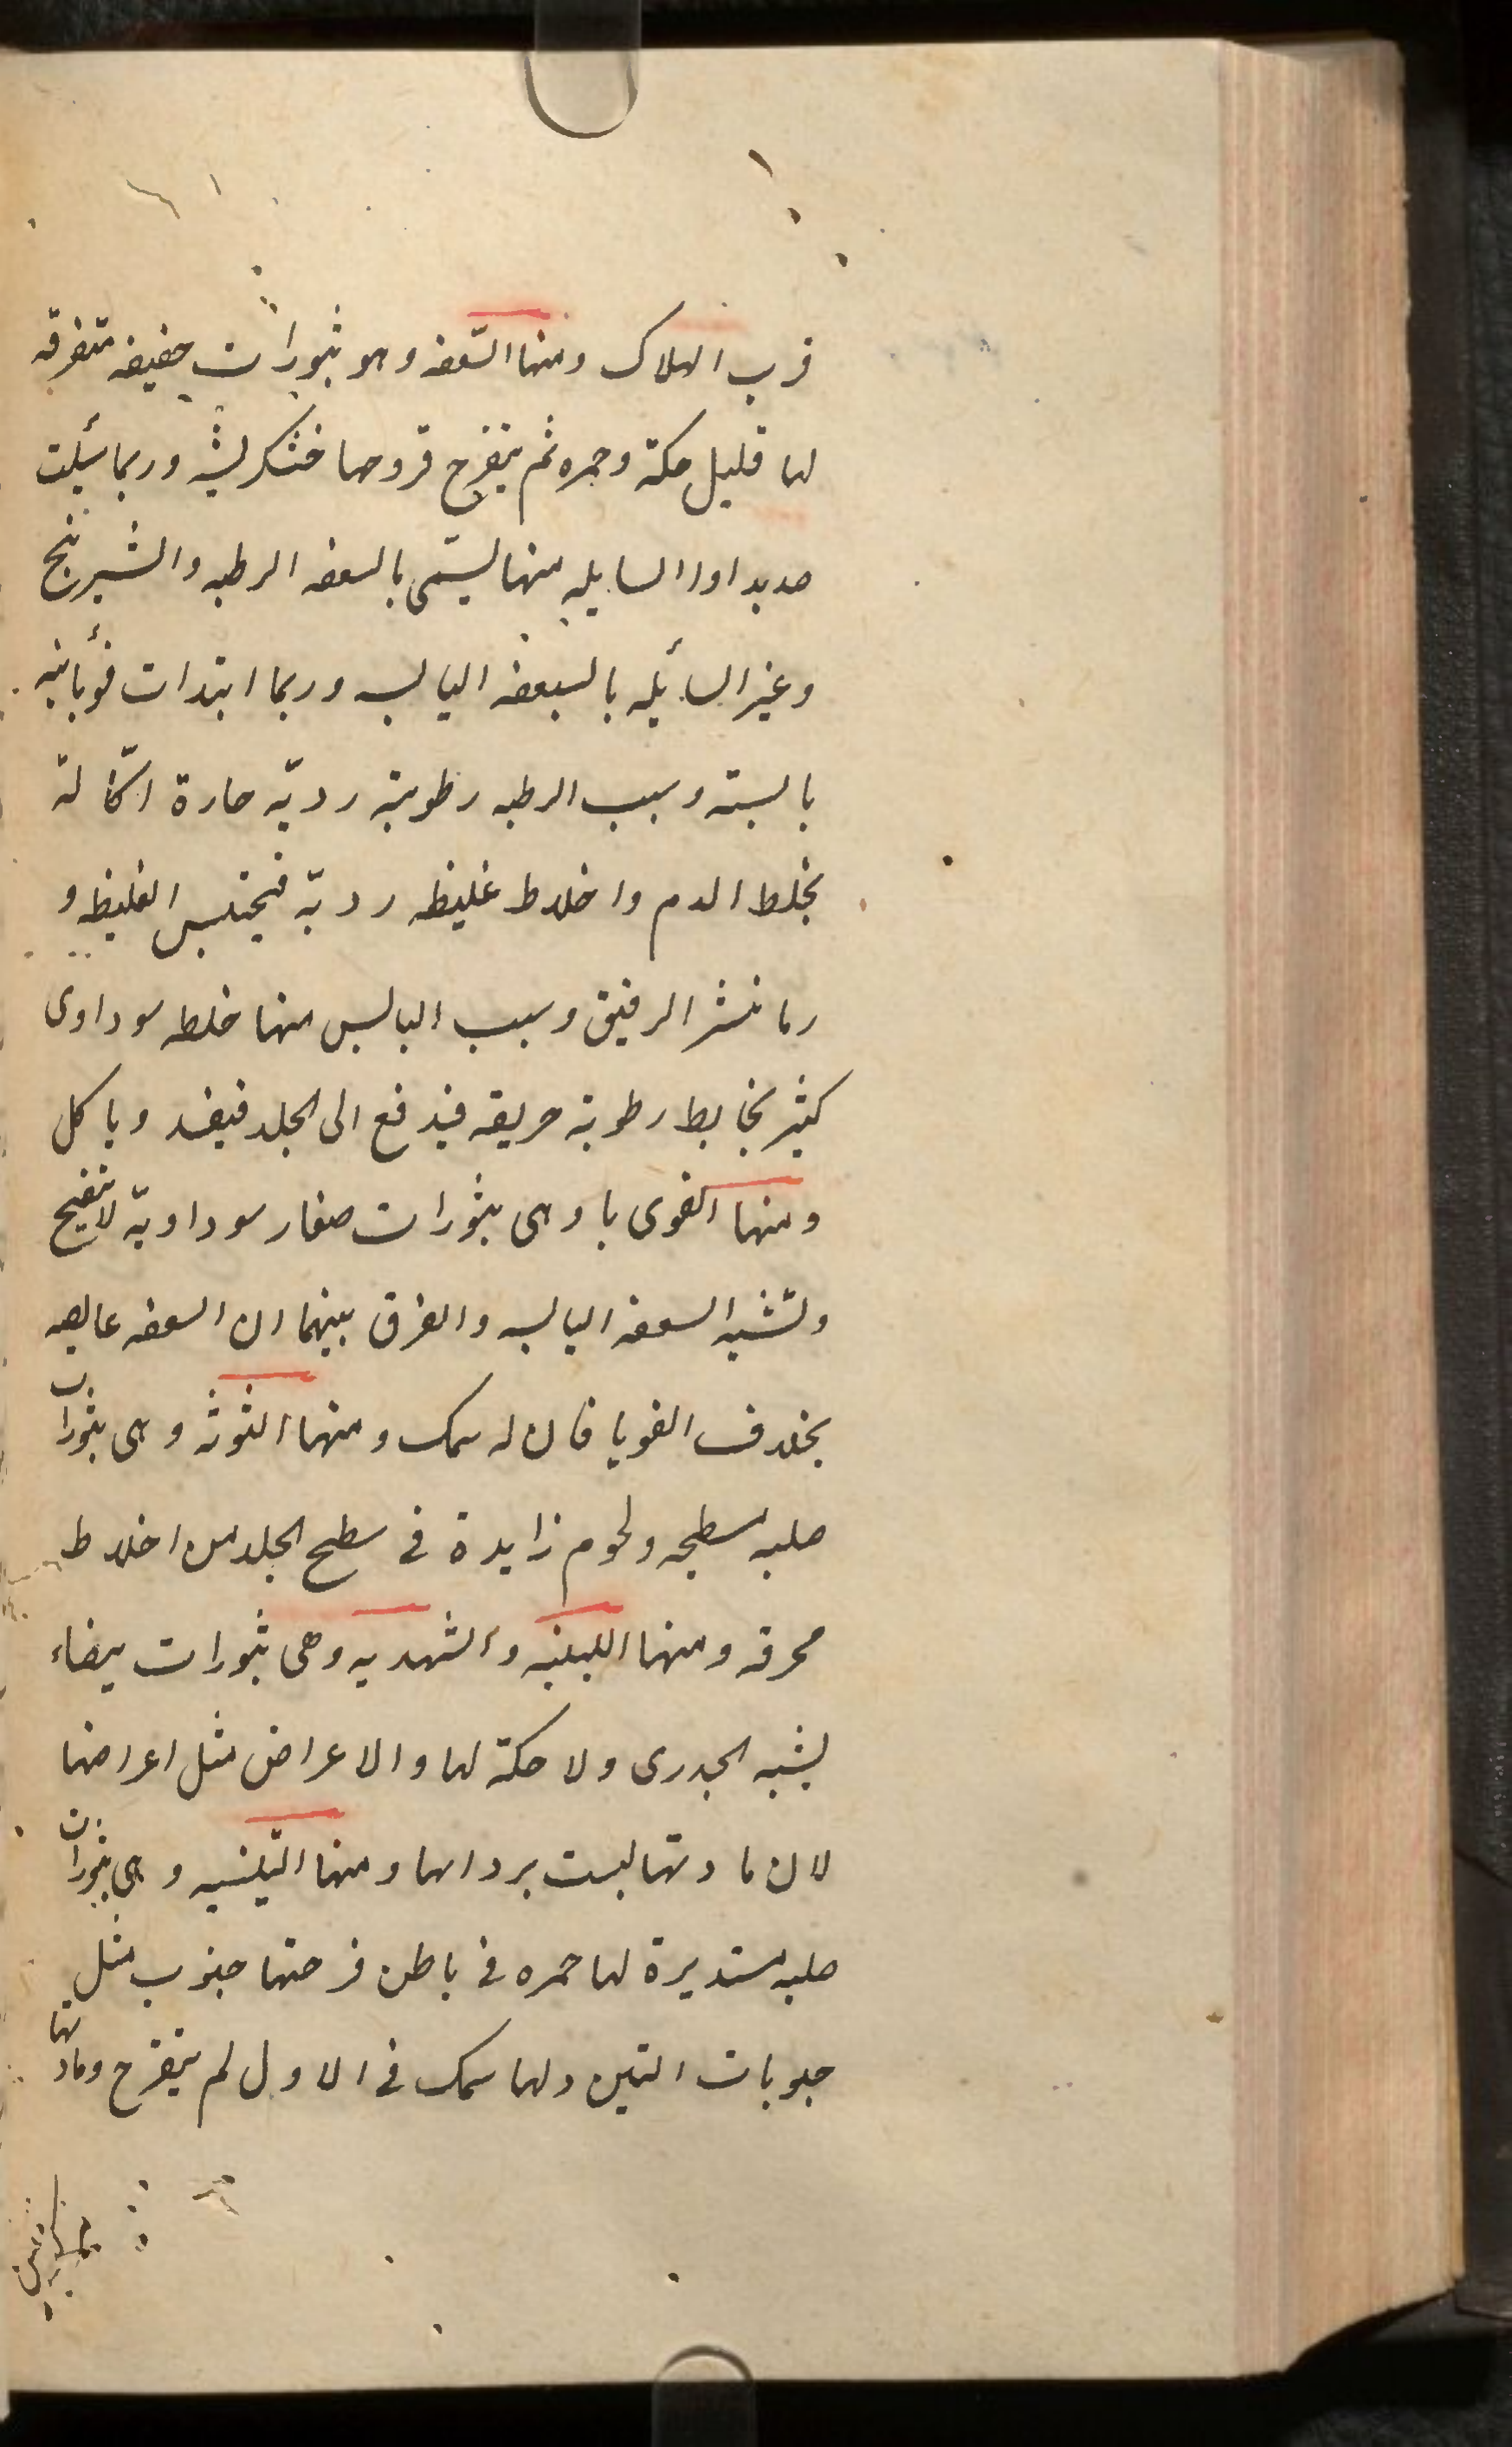 قرب الهلاك ومنها السّعفه وهو بثورات خفيفه متفرقه
لها قليل حكة وحمره ثم يتقرح قروحها خشكريشه وربما سٔيلت
صديدا واالسايله منها ليسمّى بالسعفه الرطبه والشيرنج
وغير السائله بالسعفه اليابسه وربما ابتدات قوٌبائيه
يابسته وسبب الرطبه رطوبة رديّه حارة اكّالة
بخلط الدم واخلاط غليظه رديّه فيحتبس الغليظه و
رما نشر الرقيق وسبب اليابس منها خلطه سوداوى
كثير يخابط رطوبة حريقه فيدفع الى الجلد فيفسد وياكل
ومنها القوى با وهى بثورات صغار سوداويّة لا تتقيح
وتشبه السعفه اليابسه والفرق بينهما ان السعفه عايصه
بخلاف القوبا فان له سمك ومنها التوثه وهى بثورات
صلبه مسطحه ولحوم زايدة فى سطح الجلد من اخلاط
محرقه ومنها اللبنيه والشهديه وهى بثورات بيضاء
يشبه الجدرى ولا حكة لها والاعراض مثل اعراضها
لان مادتها ليست برداها ومنها التينيه وهى بثورات
صلبه مستديرة لها حمره فى باطن قرحتها حبوب مثل
حبوبات التين ولها سمك فى الاول لم يتقرح ومادتها